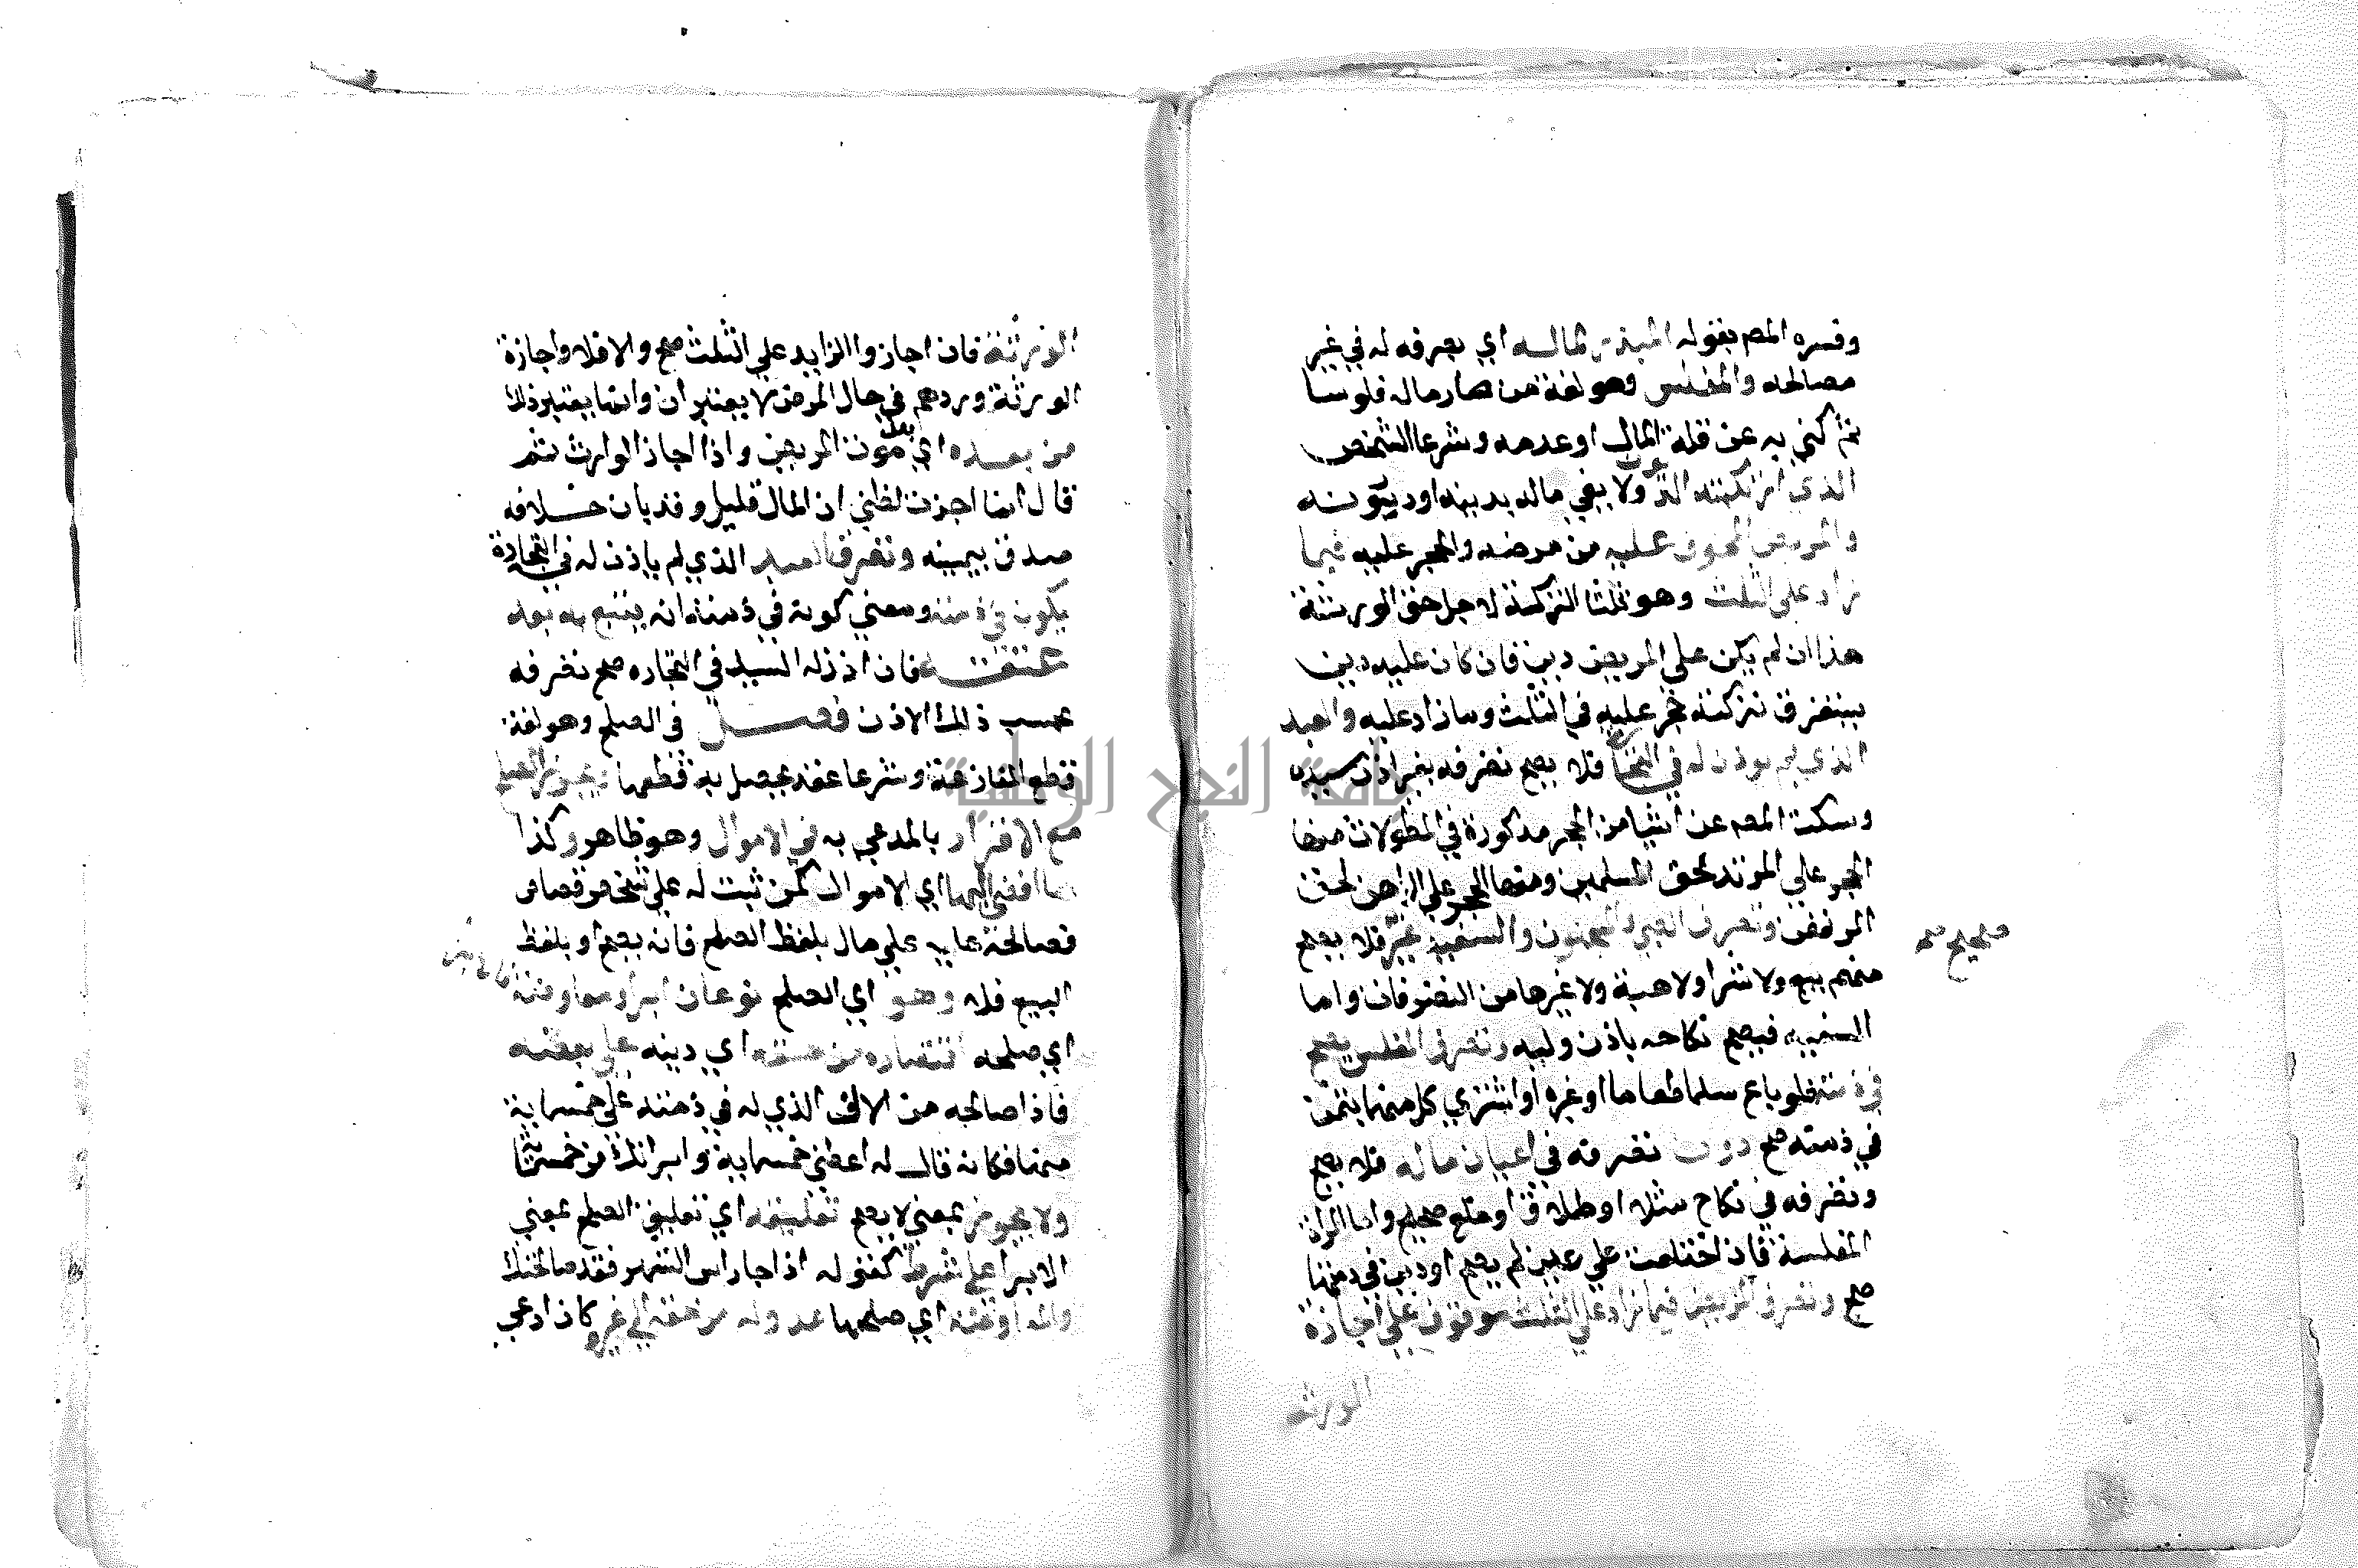 وفسره المص بقوله المبذر لماله اي يصرفه له في غير
مصالحه والمفلس وهو لغة من صار ماله فلوسا
ثم كني به عن قلة المال او عدمه وشرعا الشخص
الذي ارتكبته الديون ولا يفي ماله بدينه او ديونه
والمريض المخوف عليه من مرضه والحجر عليه فيما
زاد على الثلث وهو ثلثا التركة لاجل حق الورثة
هذا ان لم يكن على المريض دين فان كان عليه دين
يستغرق تركته حجر عليه في الثلث وما زاد عليه والعبد
الذي لم يوذن له في التجارة فلا يصح تصرفه بغير اذن سيده
وسكت المص عن اشيا من الحجر مذكورة في المطولات منها
الحجر علي المرتد لحق المسلمين ومنها الحجر علي الراهن لحق
المرتهن وتصرف الصبي والمجنون والسفيه غير فلا يصح
صحيح صح
منهم بيع ولا شرا ولا هبة ولا غيرها من التصرفات واما
السفيه فيصح نكاحه باذن وليه وتصرف المفلس يصح
في ذمته فلو باع سلما طعاما او غيره او اشتري كل منهما بثمن
في ذمته صح دون تصرفه في اعيان ماله فلا يصح
وتصرفه في نكاح مثلا او طلاق او خلع صحيح واما المراة
المفلسة فان اختلعت علي عين لم يصح او دين في ذمتها
صح وتصرف المريض فيما زاد علي الثلث موقوف علي اجازة
الورثة
الورثة فان اجازوا الزايد علي الثلث صح والا فلا واجازة
الورثة وردهم في حال المرض لا يعتبران وانما يعتبر ذلك
من بعده اي بعد موت المريض واذا اجاز الوارث ثم
قال انما اجزت لظني ان المال قليل وقد بان خلافه
صدق بيمينه وتصرف العبد الذي لم ياذن له في التجارة
يكون في ذمته ومعني كونه في ذمته انه يتبع به بعد
عتقه فان اذن له السيد في التجاره صح تصرفه
بحسب ذلك الاذن فصل في الصلح وهو لغة
قطع المنازعة وشرعا عقد يحصل به قطعها ويجوز الصلح
مع الاقرار بالمدعي به في الاموال وهو ظاهر وكذا
ما افضي اليها اي الاموال كمن ثبت له علي شخص قصاص
فصالحه عليه علي مال بلفظ الصلح فانه يصح او بلفظ
البيع فلا وهو اي الصلح نوعان ابرا ومعاوضة
اي صلحه اقتصاره من حقه اي دينه علي بعضه
فاذا صالحه من الالف الذي له في ذمته علي خمسماية
منها فكانه قال له اعطني خمسماية وابراتك من خمسماية
ولا يجوز بمعني لا يصح تعليقه اي تعليق الصلح بمعني
الابرا علي شرط كقوله اذا جا راس الشهر فقد صالحتك
والمعاوضة اي صلحها عدوله من حقه الي غيره كان ادعي
جامعة النجاح الوطنية